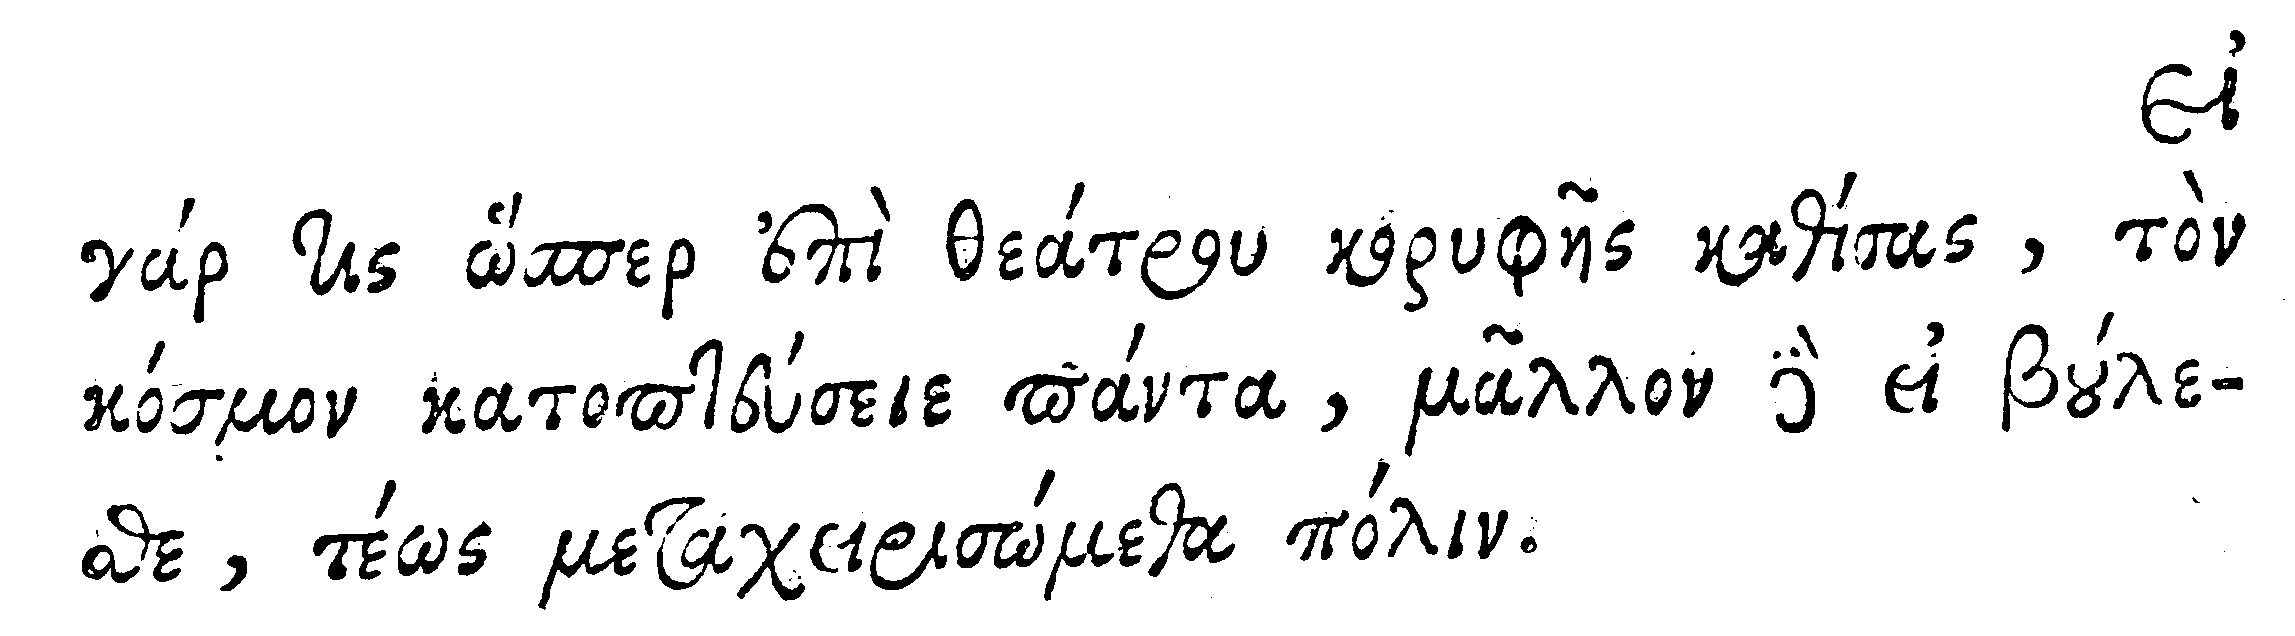 εἰ
γάρ τις ὥσπερ ἐπὶ θεάτρου κορυφῆς καθίσας, τὸν
κόσμον κατοπτεύσειε πάντα, μᾶλλον δὲ εἰ βούλε-
σθε, τέως μεταχειρισώμεθα πόλιν.